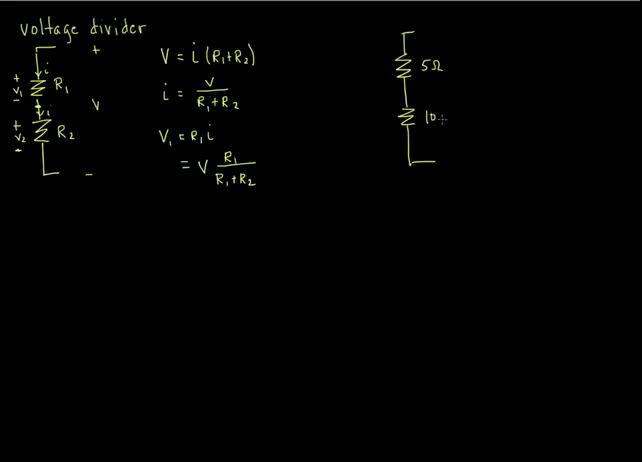 voltage divider
+
i
+
V₁
-
R₁
V
i
+
V₂
-
R₂
-
V = i (R₁+R₂)
i = V / R₁+R₂
V₁ = R₁ i
= V R₁ / R₁+R₂
5Ω
10